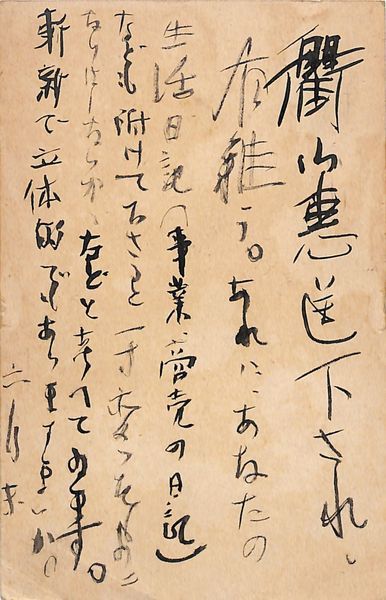 衢山恵送下され、
有難う。あれに、あなたの
生活日記の事業、商売の日記
なども附けて下さると一寸変つたものに
なりはしないか、などと考へてゐます。
斬新で立体的でもありますまいか。
六月末